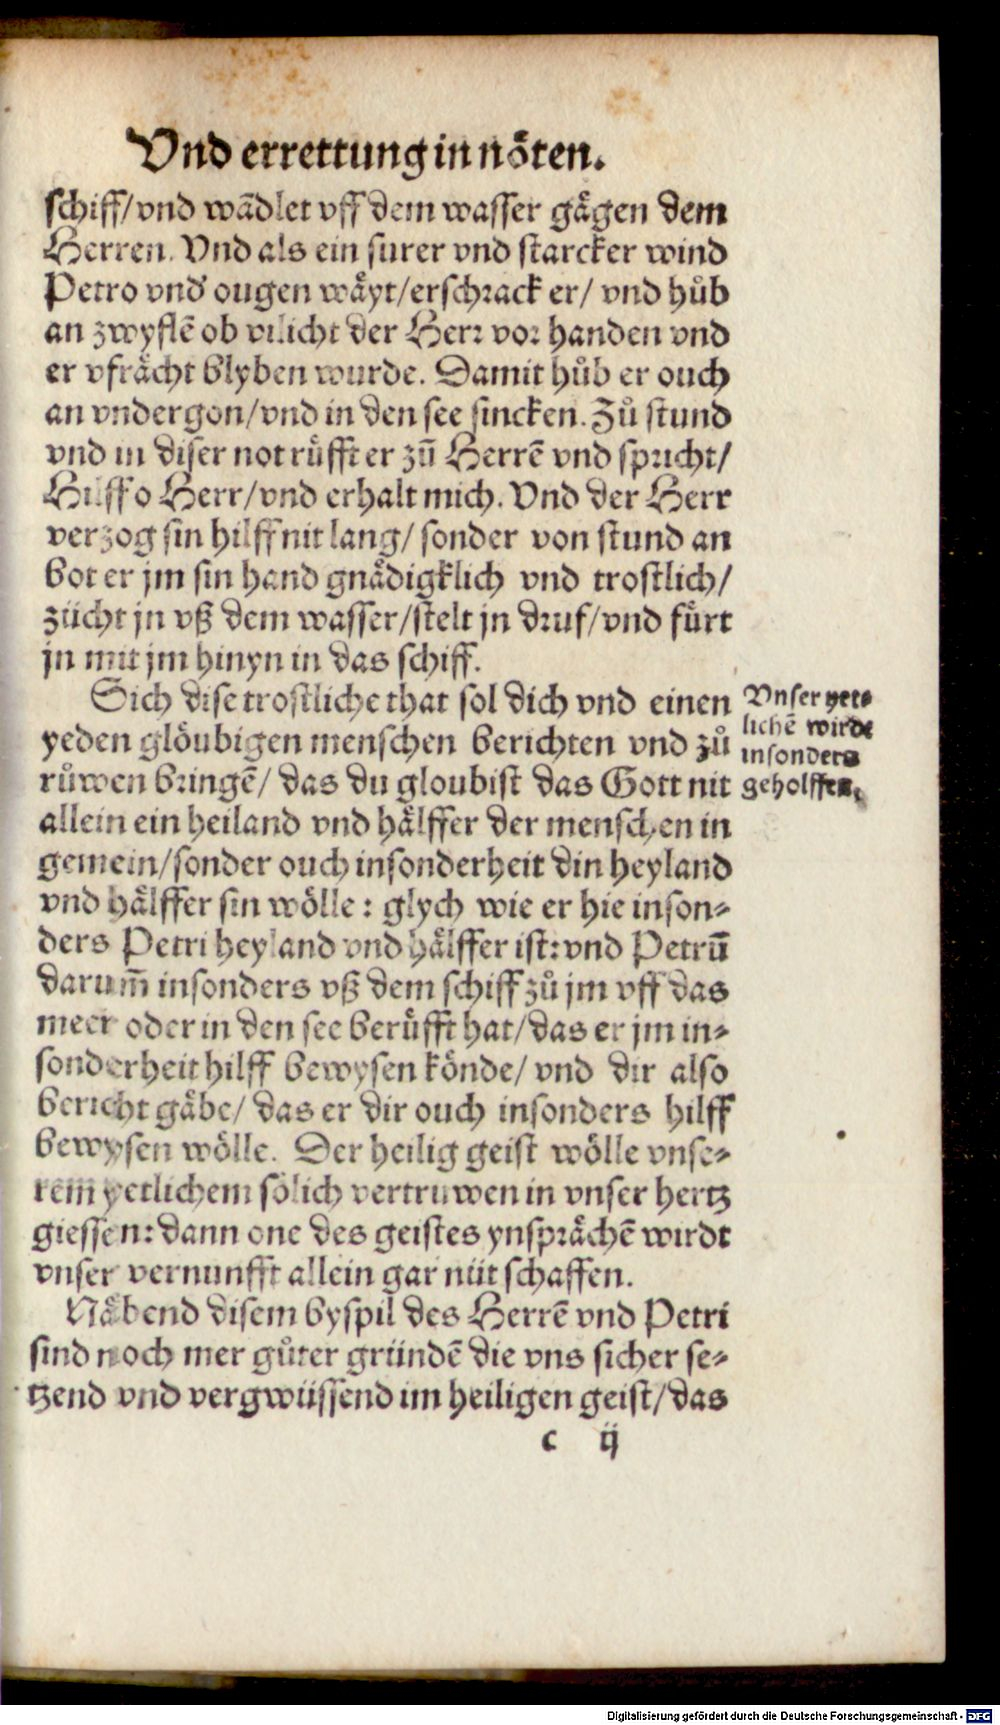 Vnd errettung in nöten.
schiff/ vnd wādlet vff dem wasser gägen dem
Herren. Vnd als ein surer vnd starcker wind
Petro vnd' ougen wäyt/ erschrack er/ vnd hůb
an zwyflē ob vilicht der Herr vor handen vnd
er vfrächt blyben wurde. Damit hůb er ouch
an vndergon/ vnd in den see sincken. Zů stund
vnd in diser not rüfft er zū Herrē vnd spricht/
Hilff o Herr/ vnd erhalt mich. Vnd der Herr
verzog sin hilff nit lang/ sonder von stund an
bot er jm sin hand gnädigklich vnd trostlich/
zücht jn vß dem wasser/ stelt jn druf/ vnd fürt
jn mit jm hinyn in das schiff.
Sich dise trostliche that sol dich vnd einen
yeden glöubigen menschen berichten vnd zů
růwen bringē/ das du gloubist das Gott nit
allein ein heiland vnd hälffer der menschen in
gemein/ sonder ouch insonderheit din heyland
vnd hälffer sin wölle: glych wie er hie inson-
ders Petri heyland vnd hälffer ist: vnd Petrū
darum̄ insonders vß dem schiff zů jm vff das
meer oder in den see berüfft hat/ das er jm in-
sonderheit hilff bewysen könde/ vnd dir also
bericht gäbe/ das er dir ouch insonders hilff
bewysen wölle. Der heilig geist wölle vnse-
rem yetlichem sölich vertruwen in vnser hertz
giessen: dann one des geistes ynsprächē wirdt
vnser vernunfft allein gar nüt schaffen.
Näbend disem byspil des Herrē vnd Petri
sind noch mer gůter gründē die vns sicher se-
tzend vnd vergwüssend im heiligen geist/ das
c ij
Vnser yet-
lichē wirdt
insonders
geholffen.
Digitalisierung gefördert durch die Deutsche Forschungsgemeinschaft - DFG